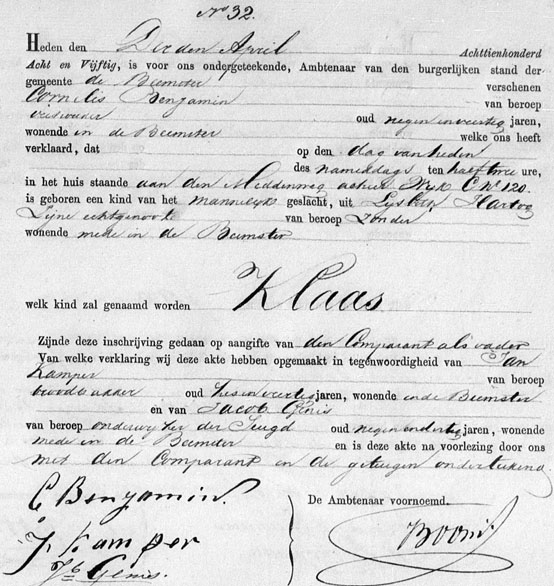 No 32.
Heden den Derden April Achttienhonderd
Acht en Vijftig, is voor ons ondergeteekende, Ambtenaar van den burgerlijken stand der
gemeente de Beemster verschenen
Cornelis Benjamin van beroep
oud negen en veertig jaren,
wonende in de Beemster welke ons heeft
verklaard, dat op den dag van heden
des namiddags ten half twee ure,
in het huis staande aan den Middenweg achter Wijk C No 120.
is geboren een kind van het mannelijk geslacht, uit Lijsbeth Hartog
Zijne echtgenoote van beroep Zonder
wonende mede in de Beemster
welk kind zal genaamd worden Klaas
Zijnde deze inschrijving gedaan op aangifte van den Comparant als vader
Van welke verklaring wij deze akte hebben opgemaakt in tegenwoordigheid van Jan
Kamper van beroep
broodbakker oud zes en veertig jaren, wonende in de Beemster
en van Jacob Genis
van beroep onderwijzer der Jeugd oud negen en dertig jaren, wonende
mede in de Beemster en is deze akte na voorlezing door ons
met den Comparant en de getuigen onderteekend
C Benjamin.
De Ambtenaar voornoemd.
J Kamper
Jb Genis.